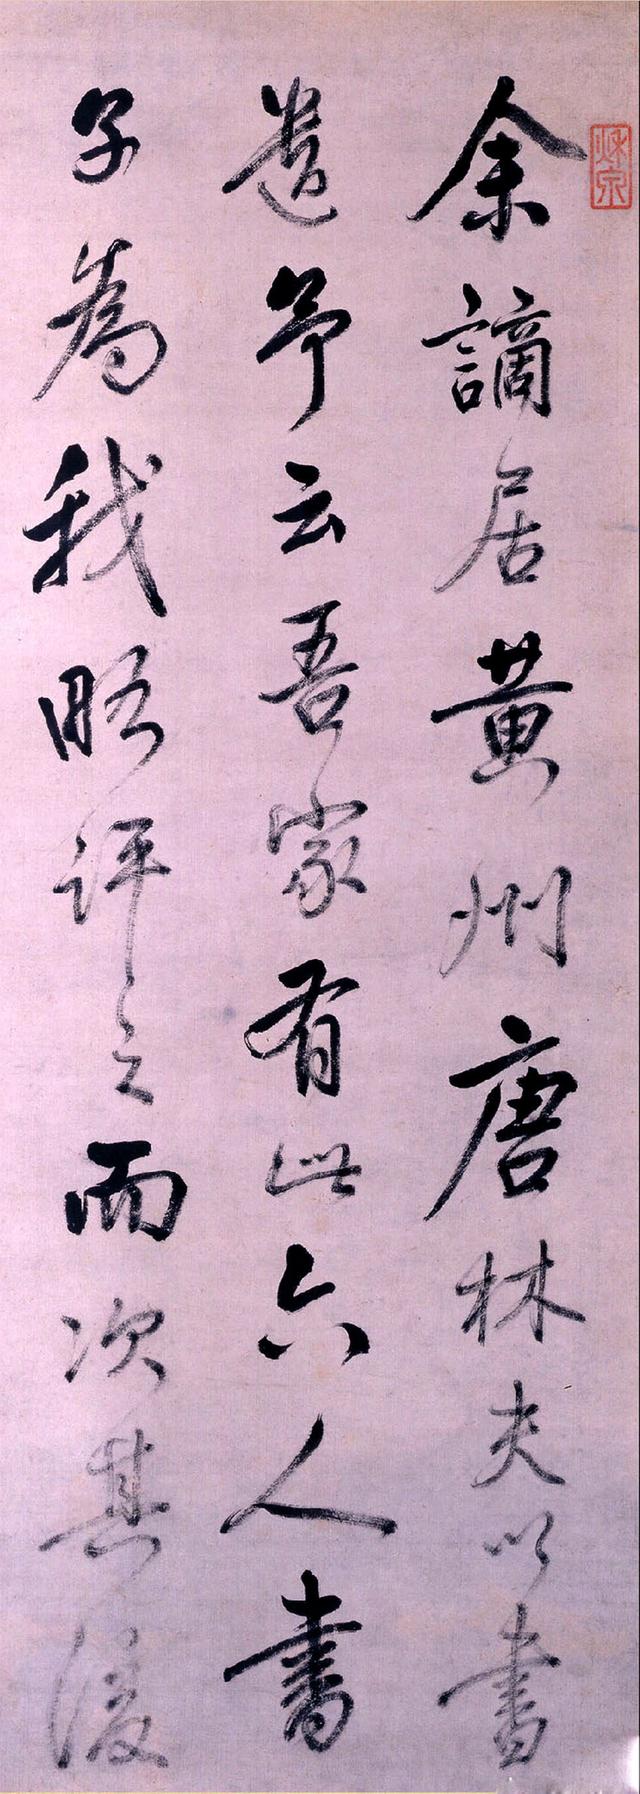 余謫居黄州唐林夫以書
遺予云吾家有此六人書
子為我略評之而次其後